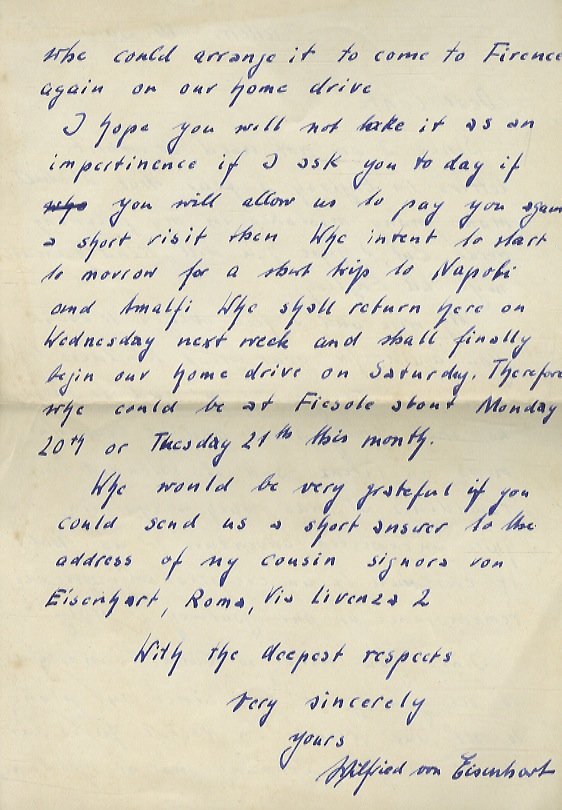 whe could arrange it to come to Firence
again on our home drive
I hope you will not take it as an
impertinence if I ask you to day if
you will allow us to pay you again
a short visit then Whe intent to start
to morrow for a short trip to Napoli
and Amalfi Whe shall return here on
Wednesday next week and shall finally
begin our home drive on Saturday. Therefore
whe could be at Fiesole about Monday
20th or Tuesday 21th this month.
Whe would be very grateful if you
could send us a short answer to the
address of my cousin signora von
Eisenhart, Roma, Via Livenza 2
With the deepest respects
very sincerely
yours
Wilfried von Eisenhart